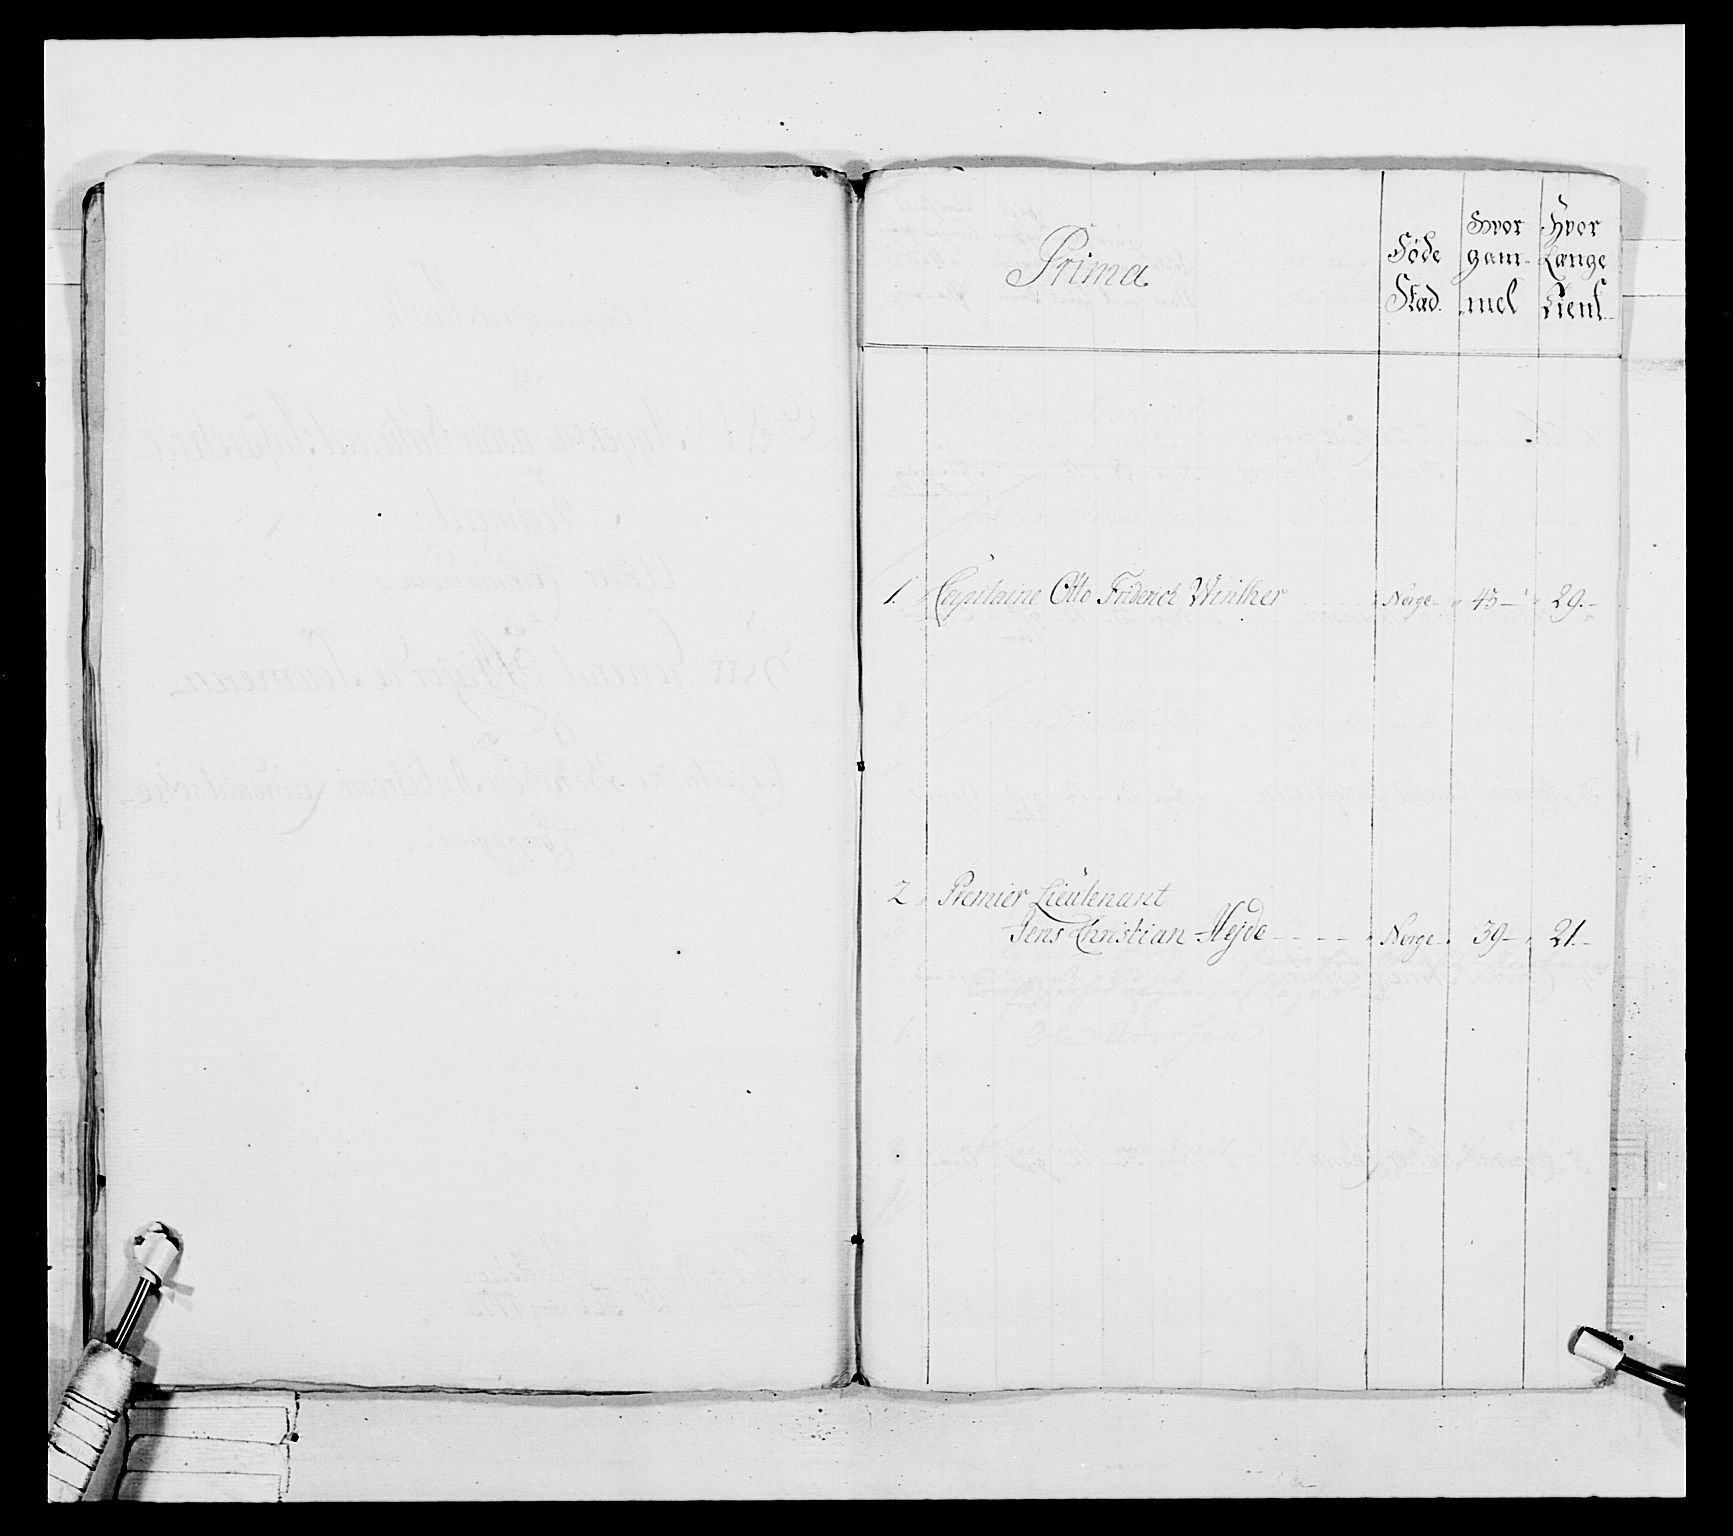 Prima
Føde Stad.
Hvor gam- mel
Hvor Længe Tient
1. Capitaine Otto Friderich Winther Norge 45 29.
2 Premier Lieutenant
Jens Christian Hejde Norge 39 21.